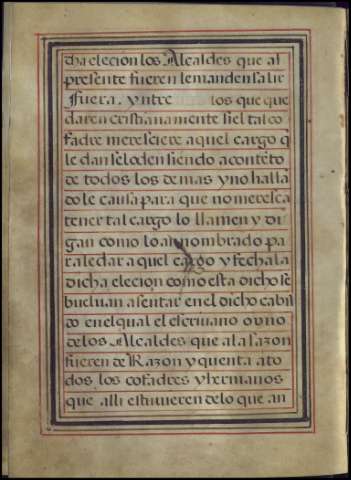 cha elecion los Alcaldes que al
presente fueren le manden salir
fuera. yntre los que que
daren cristianamente si el tal co
fadre meresciere aquel cargo q
le dan se lo den siendo a conteto
de todos los demas y no halla
do le causa para que no meresca
tener tal cargo lo llamen y di
gan como lo an nombrado pa
rale dar a quel cargo y fecha la
dicha elecion como esta dicho se
buelvan a sentar en el dicho cabil
do en el qual el escrivano o vno
de los Alcaldes que a la sazon
fueren de Razon y quenta a to
dos los cofadres y hermanos
que alli estuvieren de lo que an